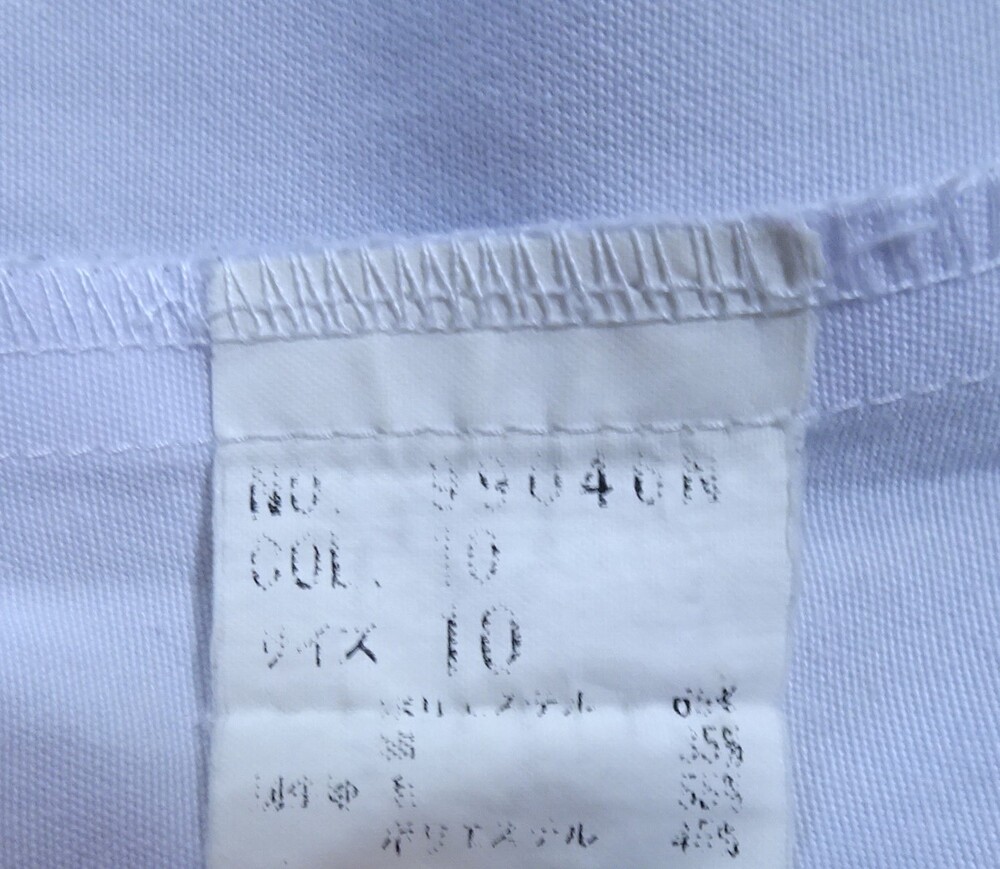 NO. 99040N
COL. 10
サイズ 10
ポリエステル 65%
綿 35%
55%
ポリエステル 45%